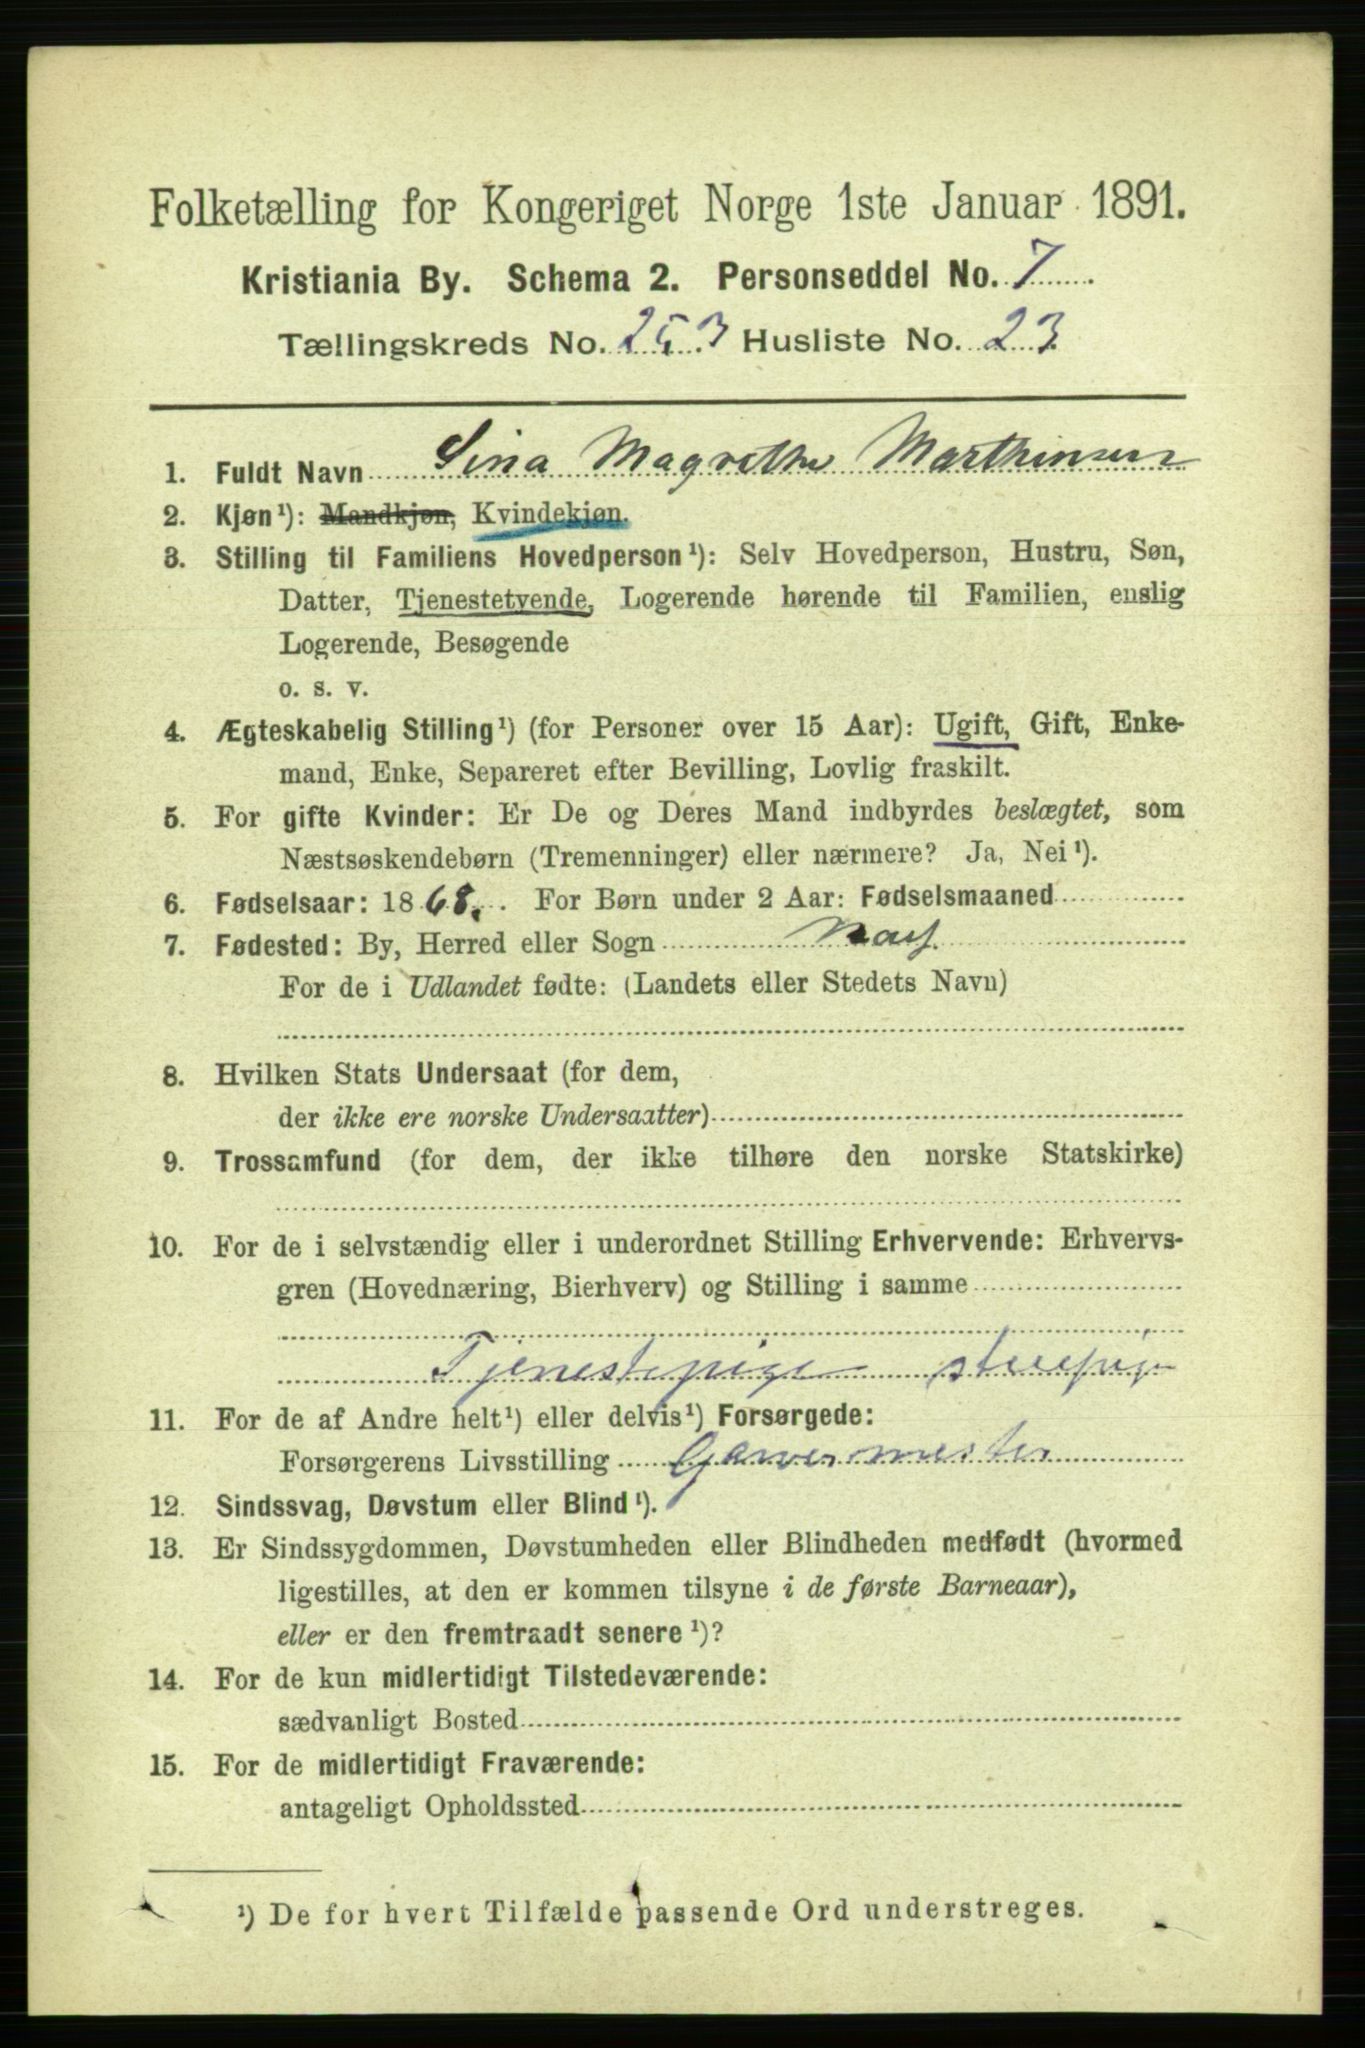 Folketælling for Kongeriget Norge 1ste Januar 1891.
Kristiania By. Schema 2. Personseddel No. 7
Tællingskreds No. 253 Husliste No. 23
1. Fuldt Navn Sina Magrethe Marthinsen
2. Kjøn¹): Mandkjøn, Kvindekjøn.
3. Stilling til Familiens Hovedperson¹): Selv Hovedperson, Hustru, Søn,
Datter, Tjenestetyende, Logerende hørende til Familien, enslig
Logerende, Besøgende
o. s. v.
4. Ægteskabelig Stilling¹) (for Personer over 15 Aar): Ugift, Gift, Enke-
mand, Enke, Separeret efter Bevilling, Lovlig fraskilt.
5. For gifte Kvinder: Er De og Deres Mand indbyrdes beslægtet, som
Næstsøskendebørn (Tremenninger) eller nærmere? Ja, Nei¹).
6. Fødselsaar: 1868. For Børn under 2 Aar: Fødselsmaaned
7. Fødested: By, Herred eller Sogn
For de i Udlandet fødte: (Landets eller Stedets Navn)
8. Hvilken Stats Undersaat (for dem,
der ikke ere norske Undersaatter)
9. Trossamfund (for dem, der ikke tilhøre den norske Statskirke)
10. For de i selvstændig eller i underordnet Stilling Erhvervende: Erhvervs-
gren (Hovednæring, Bierhverv) og Stilling i samme
Tjenestepige stuepige
11. For de af Andre helt¹) eller delvis¹) Forsørgede:
Forsørgerens Livsstilling Garvermester
12. Sindssvag, Døvstum eller Blind¹).
13. Er Sindssygdommen, Døvstumheden eller Blindheden medfødt (hvormed
ligestilles, at den er kommen tilsyne i de første Barneaar),
eller er den fremtraadt senere¹)?
14. For de kun midlertidigt Tilstedeværende:
sædvanligt Bosted
15. For de midlertidigt Fraværende:
antageligt Opholdssted
¹) De for hvert Tilfælde passende Ord understreges.